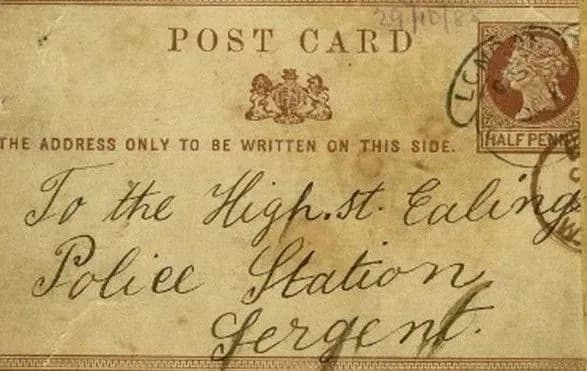 29/10/88
POST CARD
THE ADDRESS ONLY TO BE WRITTEN ON THIS SIDE.
LONDON
HALF PENNY
To the High.st. Ealing
Police Station
Sergent.